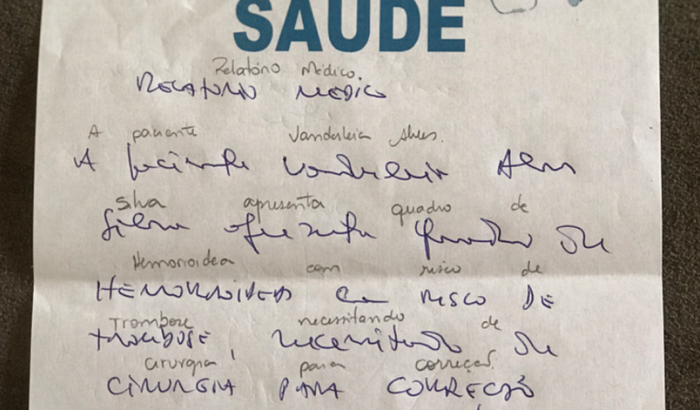 SAÚDE
Relatório Médico.
RELATÓRIO MÉDICO
A paciente Vanderleia Alves.
A paciente Vanderleia Alves
Silva apresenta quadro de
Silva apresenta quadro de
Hemorroidea com risco de
HEMORROIDEA com RISCO DE
Trombose necessitando de
TROMBOSE, necessitando de
cirurgia para correção.
CIRURGIA PARA CORREÇÃO